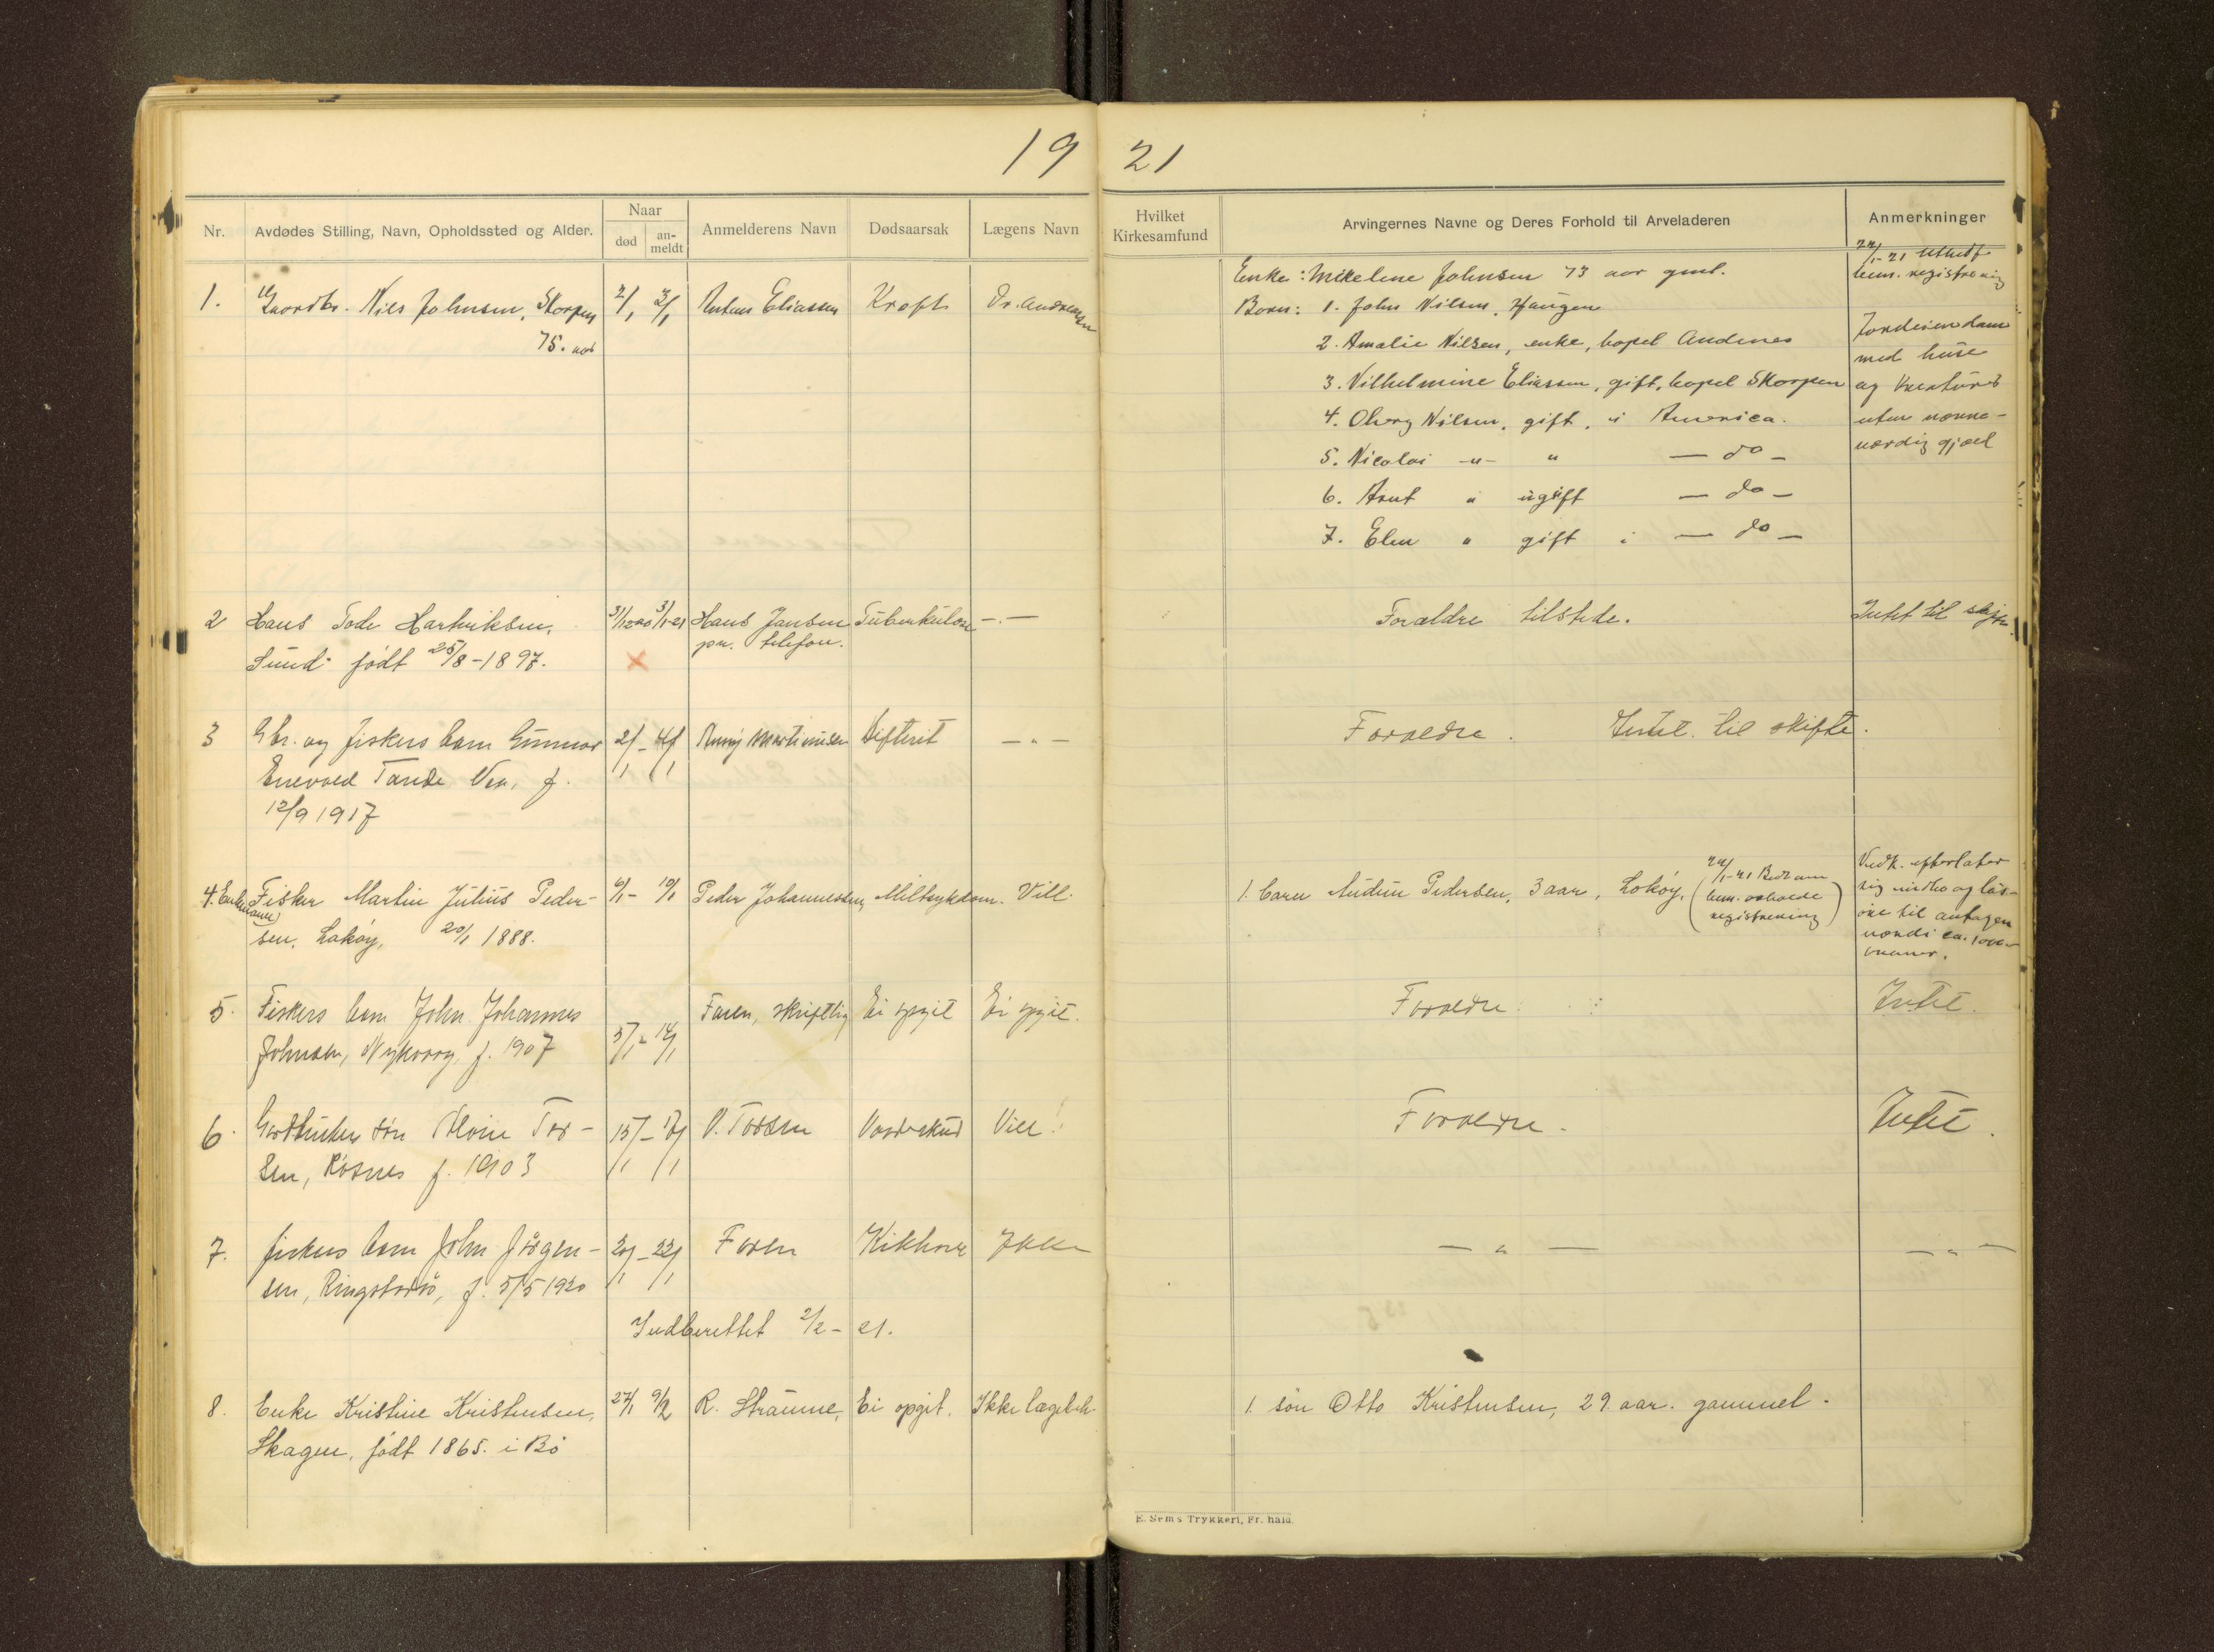 19 21
Nr. Avdødes Stilling, Navn, Opholdssted og Alder. Naar død an-meldt Anmelderens Navn Dødsaarsak Lægens Navn Hvilket Kirkesamfund Arvingernes Navne og Deres Forhold til Arveladeren Anmerkninger
1. Gaardbr. Nils Johnsen, Skorpen 2/1 3/1 Antens Eliassen Kræft Dr. Andreassen
75. aar
Enke: Mikeline Johnsen 73 aar gml.
Børn: 1. John Nilsen, Haugen
2. Amalie Nilsen, enke, bopel Andenes
3. Vilhelmine Eliassen, gift, bopel Skorpen
4. Oberg Nilsen, gift, i America.
5. Nicolai -"- " — do —
6. Arnt " ugift — do —
7. Elen " gift i — do —
24/1-21
bem. registrering
Jordeiendom
med huse
og kreaturer
uten nævne-
værdig gjæld
2 Hans Tode Hartviksen, 31/12 20 3/1-21 Hans Jansen Tuberkulose —"—
pr. telefon.
Sund født 25/8-1897.
Forældre tilstede.
Intet til skifte.
3 Gbr. og fiskers barn Gunnar 2/1 - 4/1 Martinusen Difterit —"—
Enevold Tande Vea, f.
12/9 1917
Forældre. Intet til skifte.
4. Enkemand Fisker Martin Julius Peder- 6/1- 10/1 Peder Johannessen, Miltsykdom. Vill.
sen, Lokøy, 20/1 1888.
1. barn Audun Pedersen, 3 aar, Lokøy, (24/1-21 Bedt om
bem. avholde
registrering)
Vedk. efterlater
sig indbo og løs-
øre til antagen
værdi ca. 1000
kroner.
5. Fiskers barn John Johannes Faren, skriftlig Ei opgit Ei opgit.
Johnsen, Nykvaag, f. 1907 5/1- 14/1
Forældre.
Intet.
6. Gaardbrukers søn Tor- 15/1 - 17/1 V. Torsen Vaadeskud Vill.
sen, Røsnes f. 1903
Forældre.
Intet.
7. fiskers barn John Jørgen- 20/1 - 22/1 Faren Kikhoste Ikke
sen, Ringstadsø, f. 5/5 1920
— " —
— " —
Indberettet 2/2-21.
8. Enke Kristine Kristensen, 27/1 9/2 R. Straume, Ei opgit. Ikke lægebeh.
Skagen, født 1865. i Bø
1. søn Otto Kristensen, 29 aar. gammel.
E. Sems Trykkeri, Fr. hald.